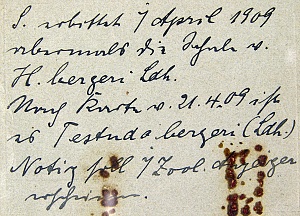 S. erbittet 7 April 1909
abermals die Schale v.
H. bergeri Ldh.
Nach Karte v. 21.4.09 ist
es Testudo bergeri (Ldh.)
Notiz soll i Zool. Anzeiger
erscheinen.